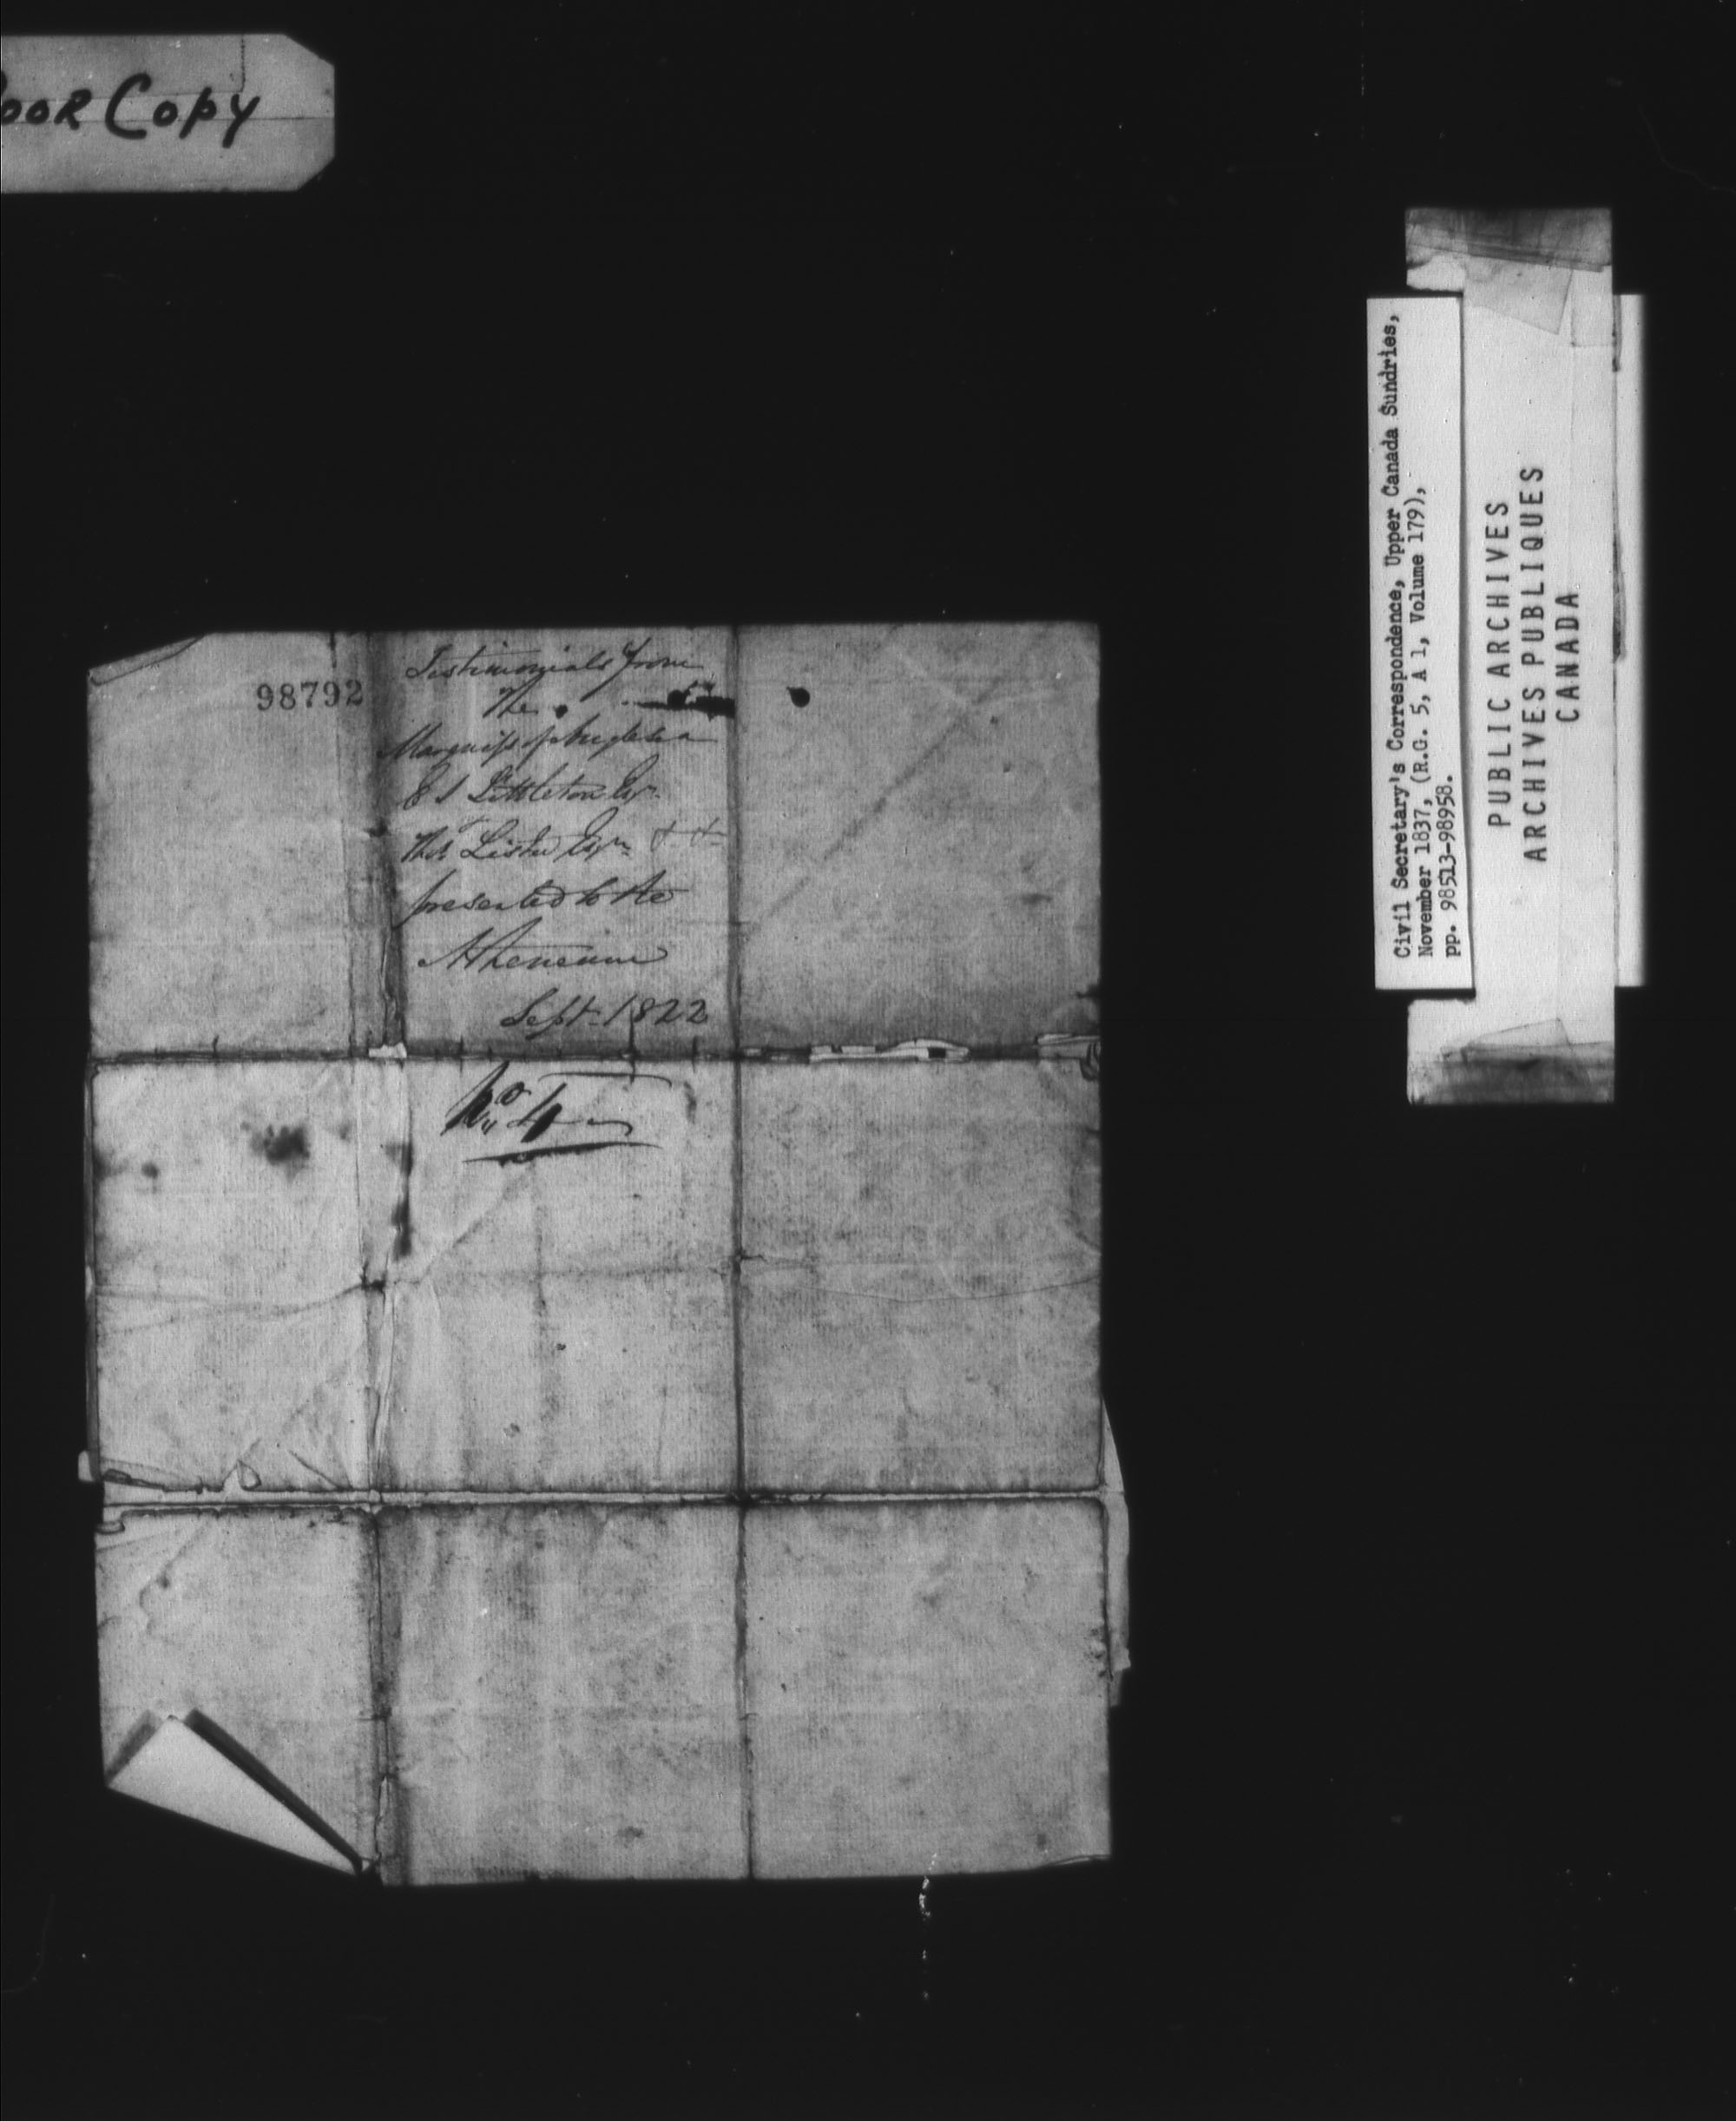 Poor Copy
98792
Testimonials from
The
Marquiss of Anglesea
E J Littleton Esqr.
Thos Lister Esqr. & &
presented to the
Atheneum
Sept. 1822
No. 4
Civil Secretary's Correspondence, Upper Canada Sundries,
November 1837, (R.G. 5, A 1, Volume 179),
pp. 98513-98958.
PUBLIC ARCHIVES
ARCHIVES PUBLIQUES
CANADA